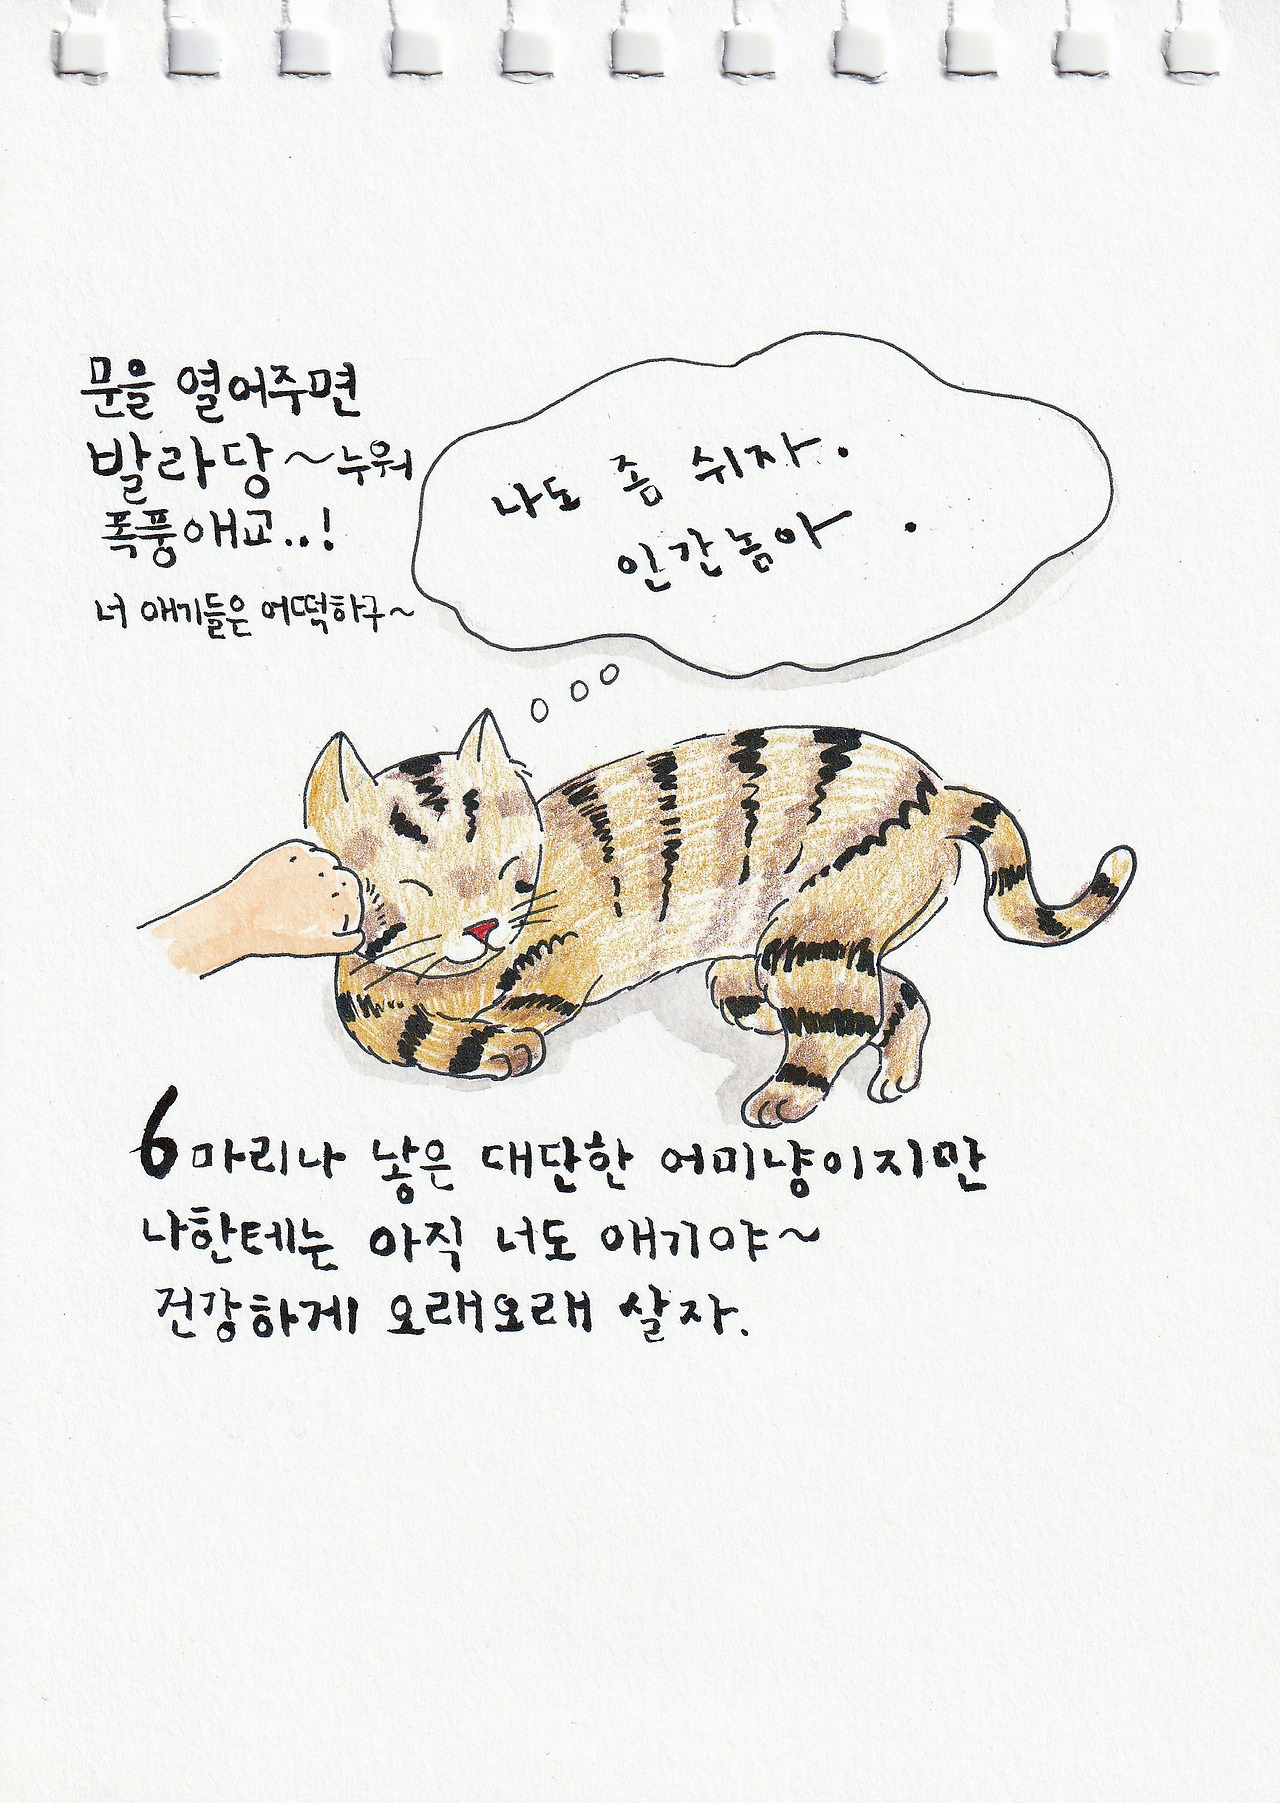 문을 열어주면
발라당~누워
폭풍애교..!
너 애기들은 어떡하구~
나도 좀 쉬자.
인간놈아.
6마리나 낳은 대단한 어미냥이지만
나한테는 아직 너도 애기야~
건강하게 오래오래 살자.